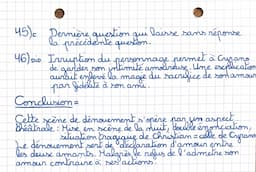 45)= Dernière question qui laisse sans réponse
la précédente question.
46)=> Irruption du personnage permet à Cyrano
de garder son intimité amoindrise. Une explication
aurait enlevé la magie du sacrifice de son amour
par fidélité à son ami.
Conclusion=
Cette scène de dénouement s'opère par son aspect
théâtrale: Mise en scène de la nuit, double énonciation,
situation tragique de Christian = celle de Cyrano
Le dénouement sert de déclaration d'amour entre
les deux amants. Malgrès le refus de l'admettre son
amour contraire à ses actions.